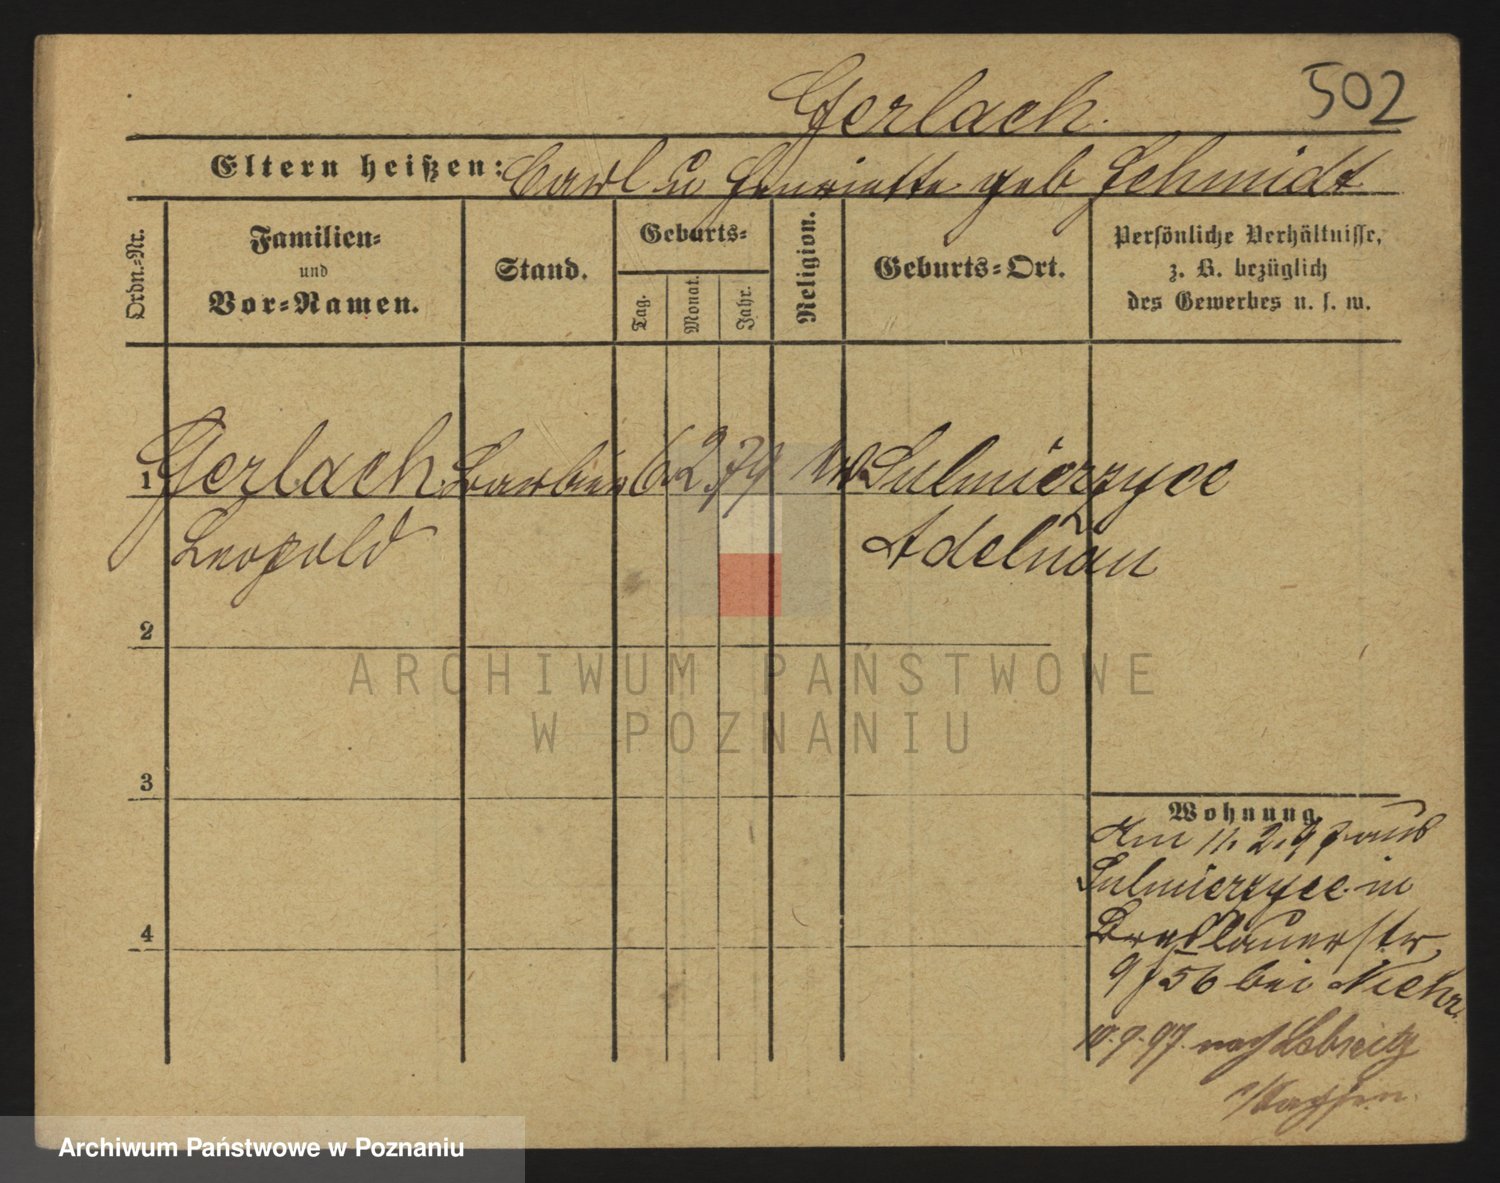 502
Gerlach.
Eltern heißen: Carl u Henriette geb Schmidt
Ordn.-Nr.
Familien-
und
Vor-Namen.
Stand.
Geburts-
Tag.
Monat.
Jahr.
Religion.
Geburts-Ort.
Persönliche Verhältnisse,
z. B. bezüglich
des Gewerbes u. s. w.
1 Gerlach Barbier 6. 2. 79 Sulmierzyce
Leopold Adelnau
2
ARCHIWUM PAŃSTWOWE
W POZNANIU
3
4
Wohnung
Am 11. 2. 97 aus
Sulmierzyce in
Breslauerstr.
9 56 bei
10. 9. 97. nach
Archiwum Państwowe w Poznaniu